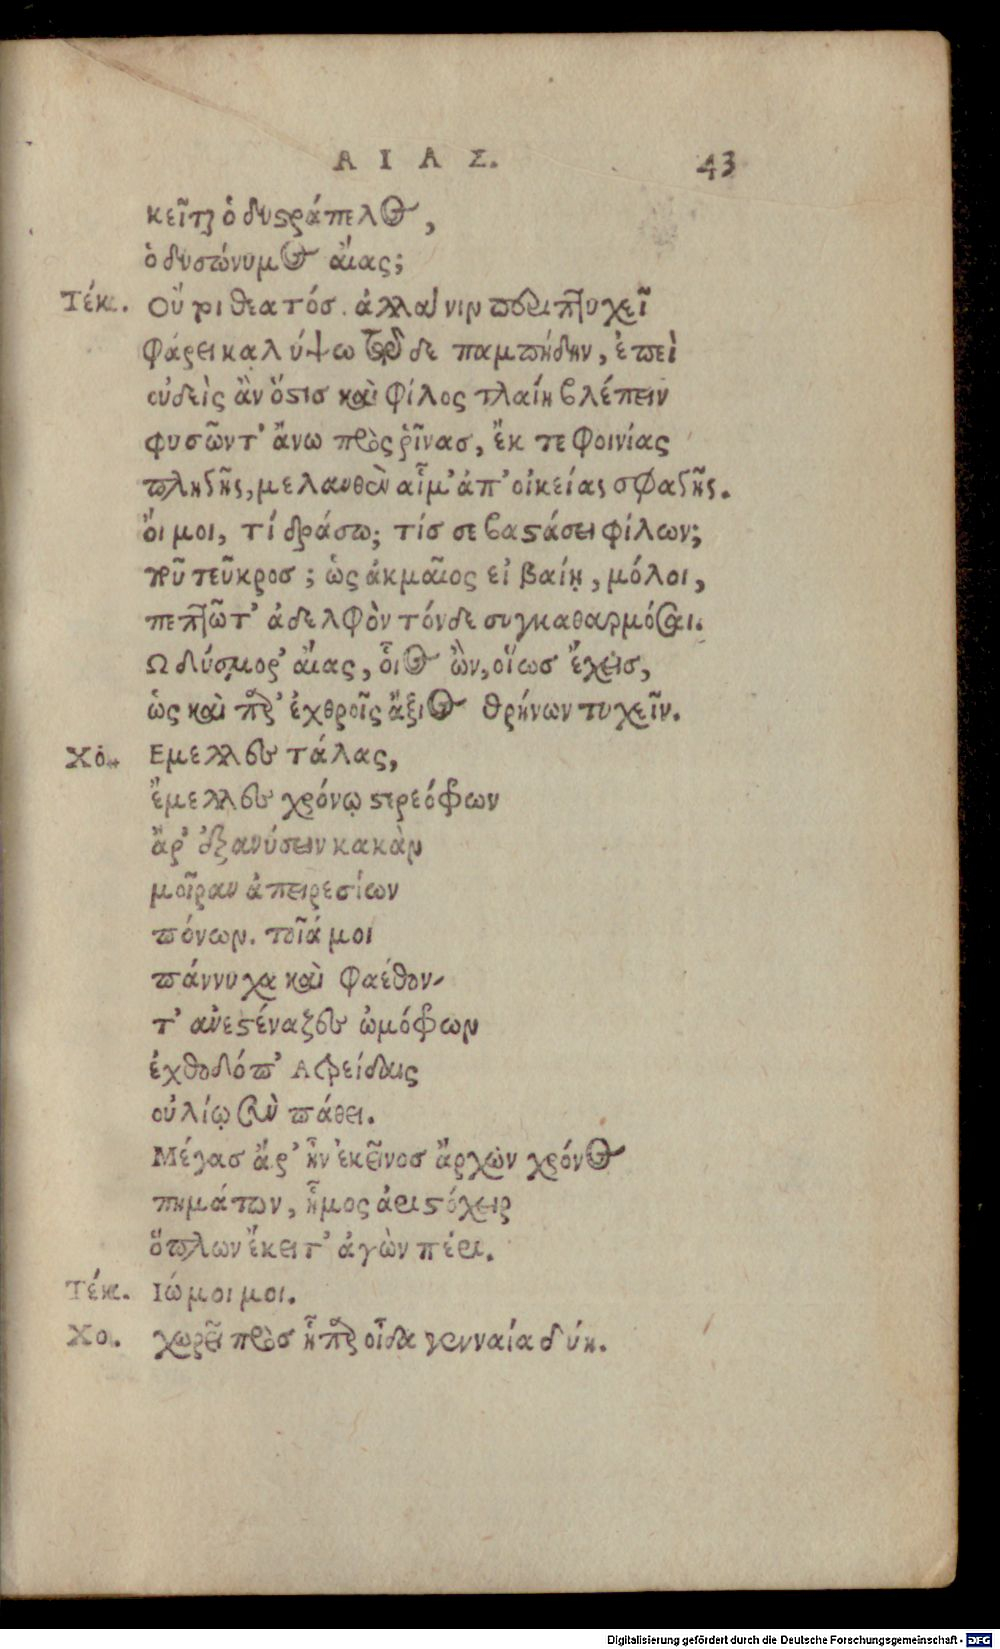 ΑΙΑΣ.
43
κεῖται ὁ δυστράπελος,
ὁ δυσώνυμος αἴας;
Τέκ. Οὔ τι θεατός. ἀλλά νιν περιπτυχεῖ
φάρει καλύψω τῷδε παμπήδην, ἐπεὶ
οὐδεὶς ἂν ὅστις καὶ φίλος τλαίη βλέπειν
φυσῶντ' ἄνω πρὸς ῥῖνας, ἔκ τε φοινίας
πληγῆς, μελανθὲν αἷμ' ἀπ' οἰκείας σφαγῆς.
οἴμοι, τί δράσω; τίς σε βαστάσει φίλων;
ποῦ τεῦκρος; ὡς ἀκμαῖος εἰ βαίη, μόλοι,
πεπτῶτ' ἀδελφὸν τόνδε συγκαθαρμόσαι.
Ω δύσμορ' αἴας, οἷος ὢν, οἵως ἔχεις,
ὡς καὶ παρ' ἐχθροῖς ἄξιος θρήνων τυχεῖν.
Χό. Εμελλες τάλας,
ἔμελλες χρόνῳ στερεόφρων
ἄρ' ἐξανύσειν κακὰν
μοῖραν ἀπειρεσίων
πόνων. τοῖά μοι
πάννυχα καὶ φαέθον-
τ' ἀνεστέναζες ὠμόφρων
ἐχθοδόπ' Ατρείδαις
οὐλίῳ σὺν πάθει.
Μέγας ἄρ' ἦν ἐκεῖνος ἄρχων χρόνος
πημάτων, ἦμος ἀριστόχειρ
ὅπλων ἔκειτ' ἀγὼν πέρι.
Τέκ. Ιώ μοι μοι.
Χο. χωρεῖ πρὸς ἧπαρ οἶδα γενναία δύη.
Digitalisierung gefördert durch die Deutsche Forschungsgemeinschaft - DFG